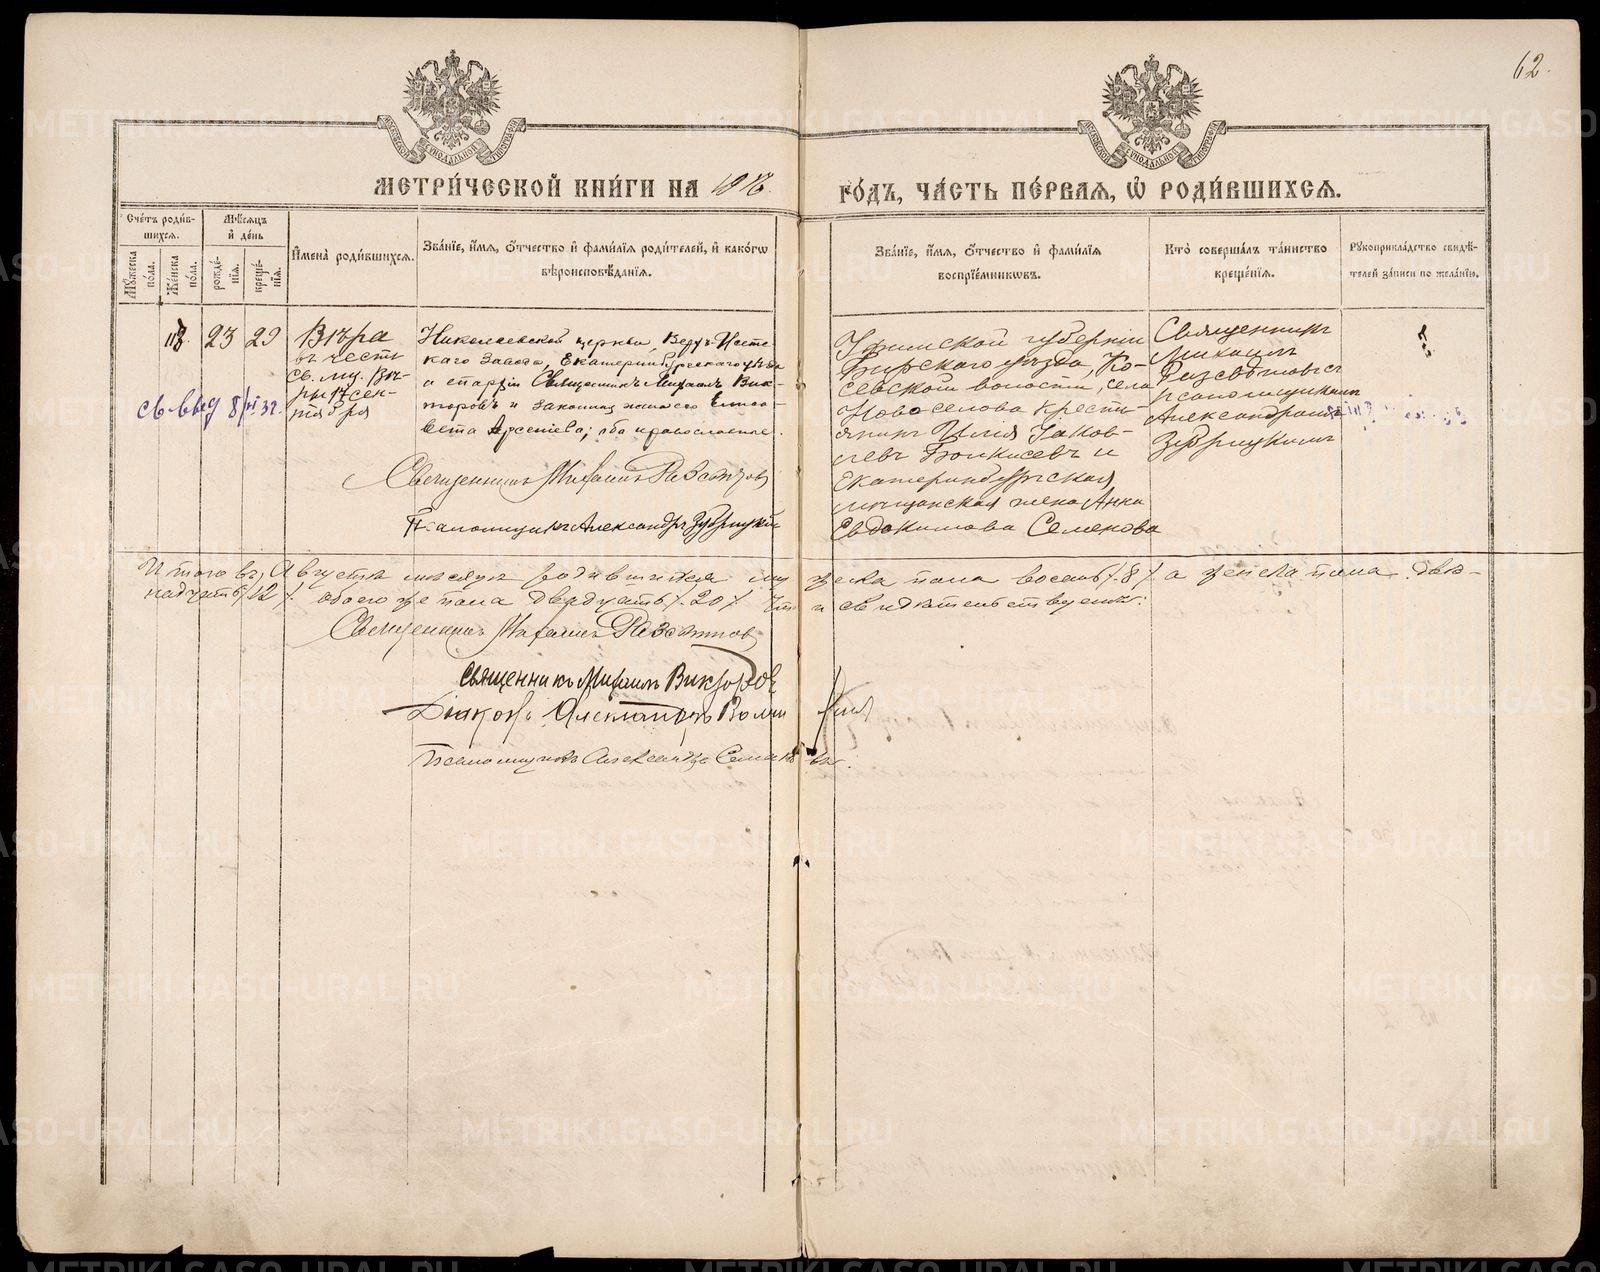 62.
МОСКОВСКОЙ СѴНОДАЛЬНОЙ ТИПОГРАФІИ
МОСКОВСКОЙ СѴНОДАЛЬНОЙ ТИПОГРАФІИ
МЕТРИ́ЧЕСКОЙ КНИ́ГИ НА
ГО́ДЪ, ЧА́СТЬ ПЕ́РВАЯ, Ѡ РОДИ́ВШИХСЯ.
Сче́тъ роди́в-
шихся.
Мѣ́сяцъ
и де́нь
Му́жеска
по́ла.
Же́нска
по́ла.
рожде́-
нія.
креще́-
нія.
Имена̀ роди́вшихся.
Зва́ніе, и́мя, о́тчество и фами́лія роди́телей, и како́гѡ
вѣроисповѣ́данія.
Зва́ніе, и́мя, о́тчество и фами́лія
воспріе́мниковъ.
Кто̀ соверша́лъ та́инство
креще́нія.
Рукоприкла́дство свидѣ́-
телей за́писи по жела́нію.
23 29
Вѣра
въ честь
св. мц. Вѣ-
ры 17 сен-
тября
Николаевской церкви, Верх-Исетс-
каго Завода, Екатеринбургскаго уѣзда
и епархіи Священникъ Михаилъ Вик-
торовъ и законная жена его Елиса-
вета Арсеніева; оба православные.
Священникъ Михаилъ
Псаломщикъ Александръ Зубрицкій
Уфимской губерніи
Бирскаго уѣзда,
волости, села
Новоселова кресть-
янинъ Илія Яков-
левъ и
Екатеринбургская
мѣщанская жена Анна
Евдокимова Семенова
Священникъ
Михаилъ
съ
псаломщикомъ
Александромъ
Зубрицкимъ
Итого въ Августѣ мѣсяцѣ родившихся мужеска пола восемь /8/ а женска пола двѣ-
надцать /12/ обоего же пола двадцать /20/ Что и свидѣтельствуемъ:
Священникъ Михаилъ
Священникъ Михаилъ Викторовъ
Діаконъ Александръ
Псаломщикъ Александръ
METRIKI.GASO-URAL.RU